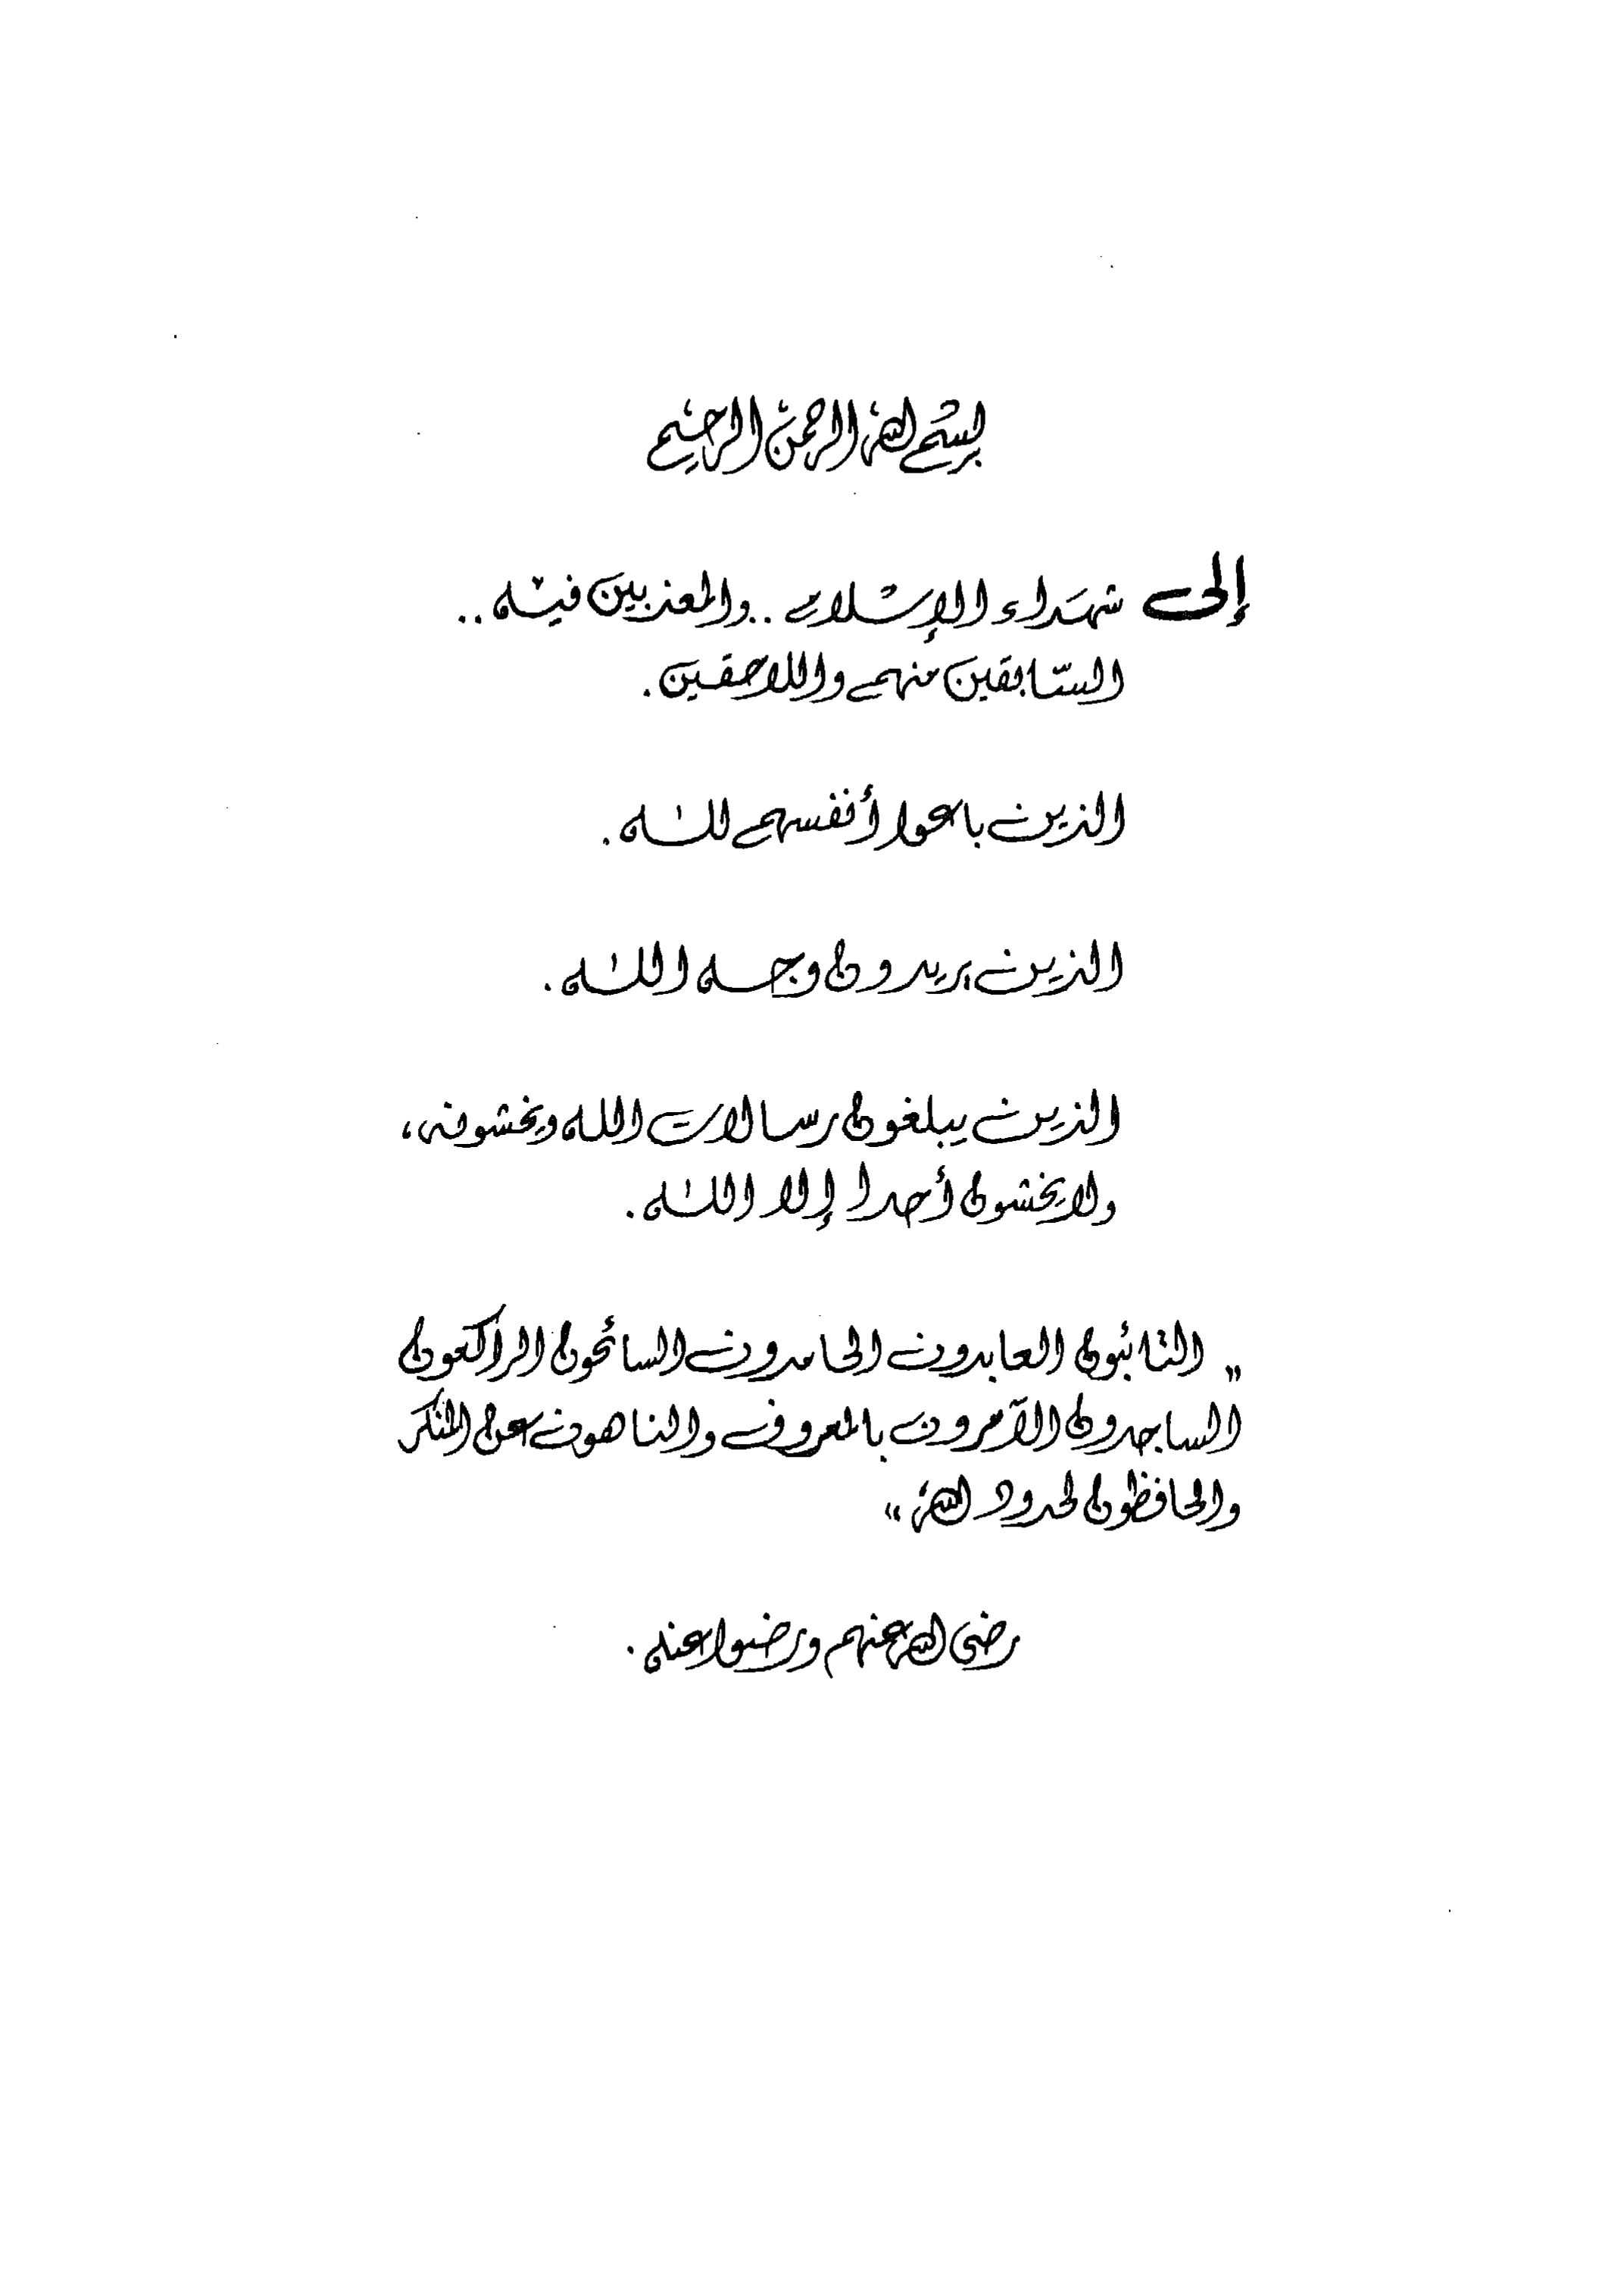 بسم الله الرحمن الرحيم
إلى شهداء الإسلام .. والمعذبين فيه ..
السابقين منهم واللاحقين .
الذين باعوا أنفسهم لله .
الذين يريدون وجه الله .
الذين يبلغون رسالات الله ويخشونه ،
ولا يخشون أحدا إلا الله .
" التائبون العابدون الحامدون السائحون الراكعون
الساجدون الآمرون بالمعروف والناهون عن المنكر
والحافظون لحدود الله "
رضى الله عنهم ورضوا عنه .